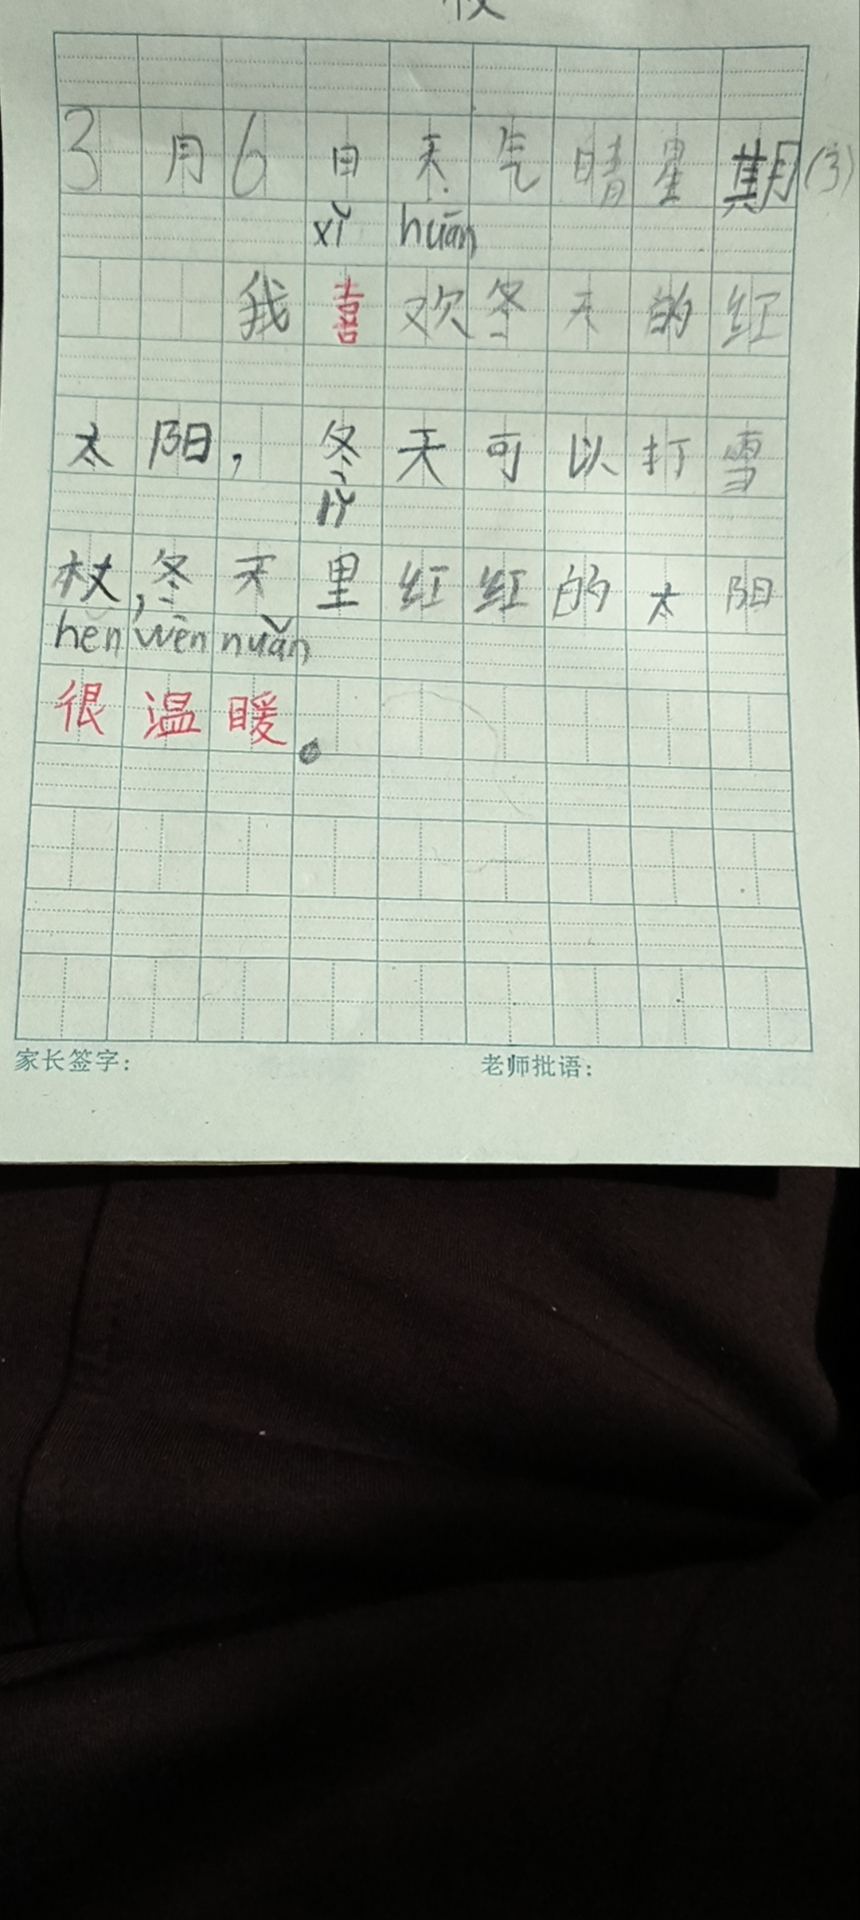 3月6日天气晴星期
xǐ huān
我喜欢冬天的红
太阳，冬天可以打雪
lǐ
杖，冬天里红红的太阳
hěn wēn nuǎn
很温暖。
家长签字： 老师批语：